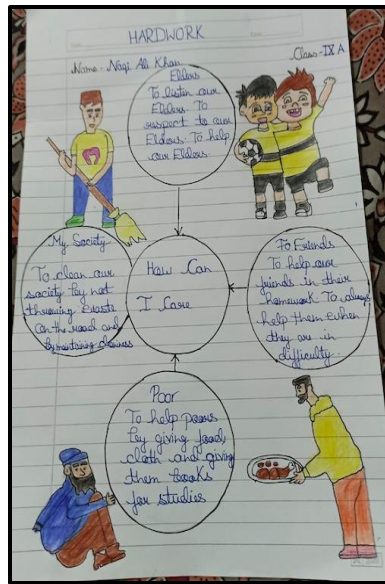 HARDWORK
Name - Naqi Ali Khan
Class - IX A
Elders
To listen our
Elders. To
respect to our
Elders. To help
our Elders.
My Society
To clean our
society by not
throwing waste
on the road and
by mentaining cleaness
How Can
I Care
Fo Friends
To help our
friends in their
homework. To always
help them when
they are in
difficulty..
Poor
To help poors
by giving food,
cloth and giving
them books
for studies